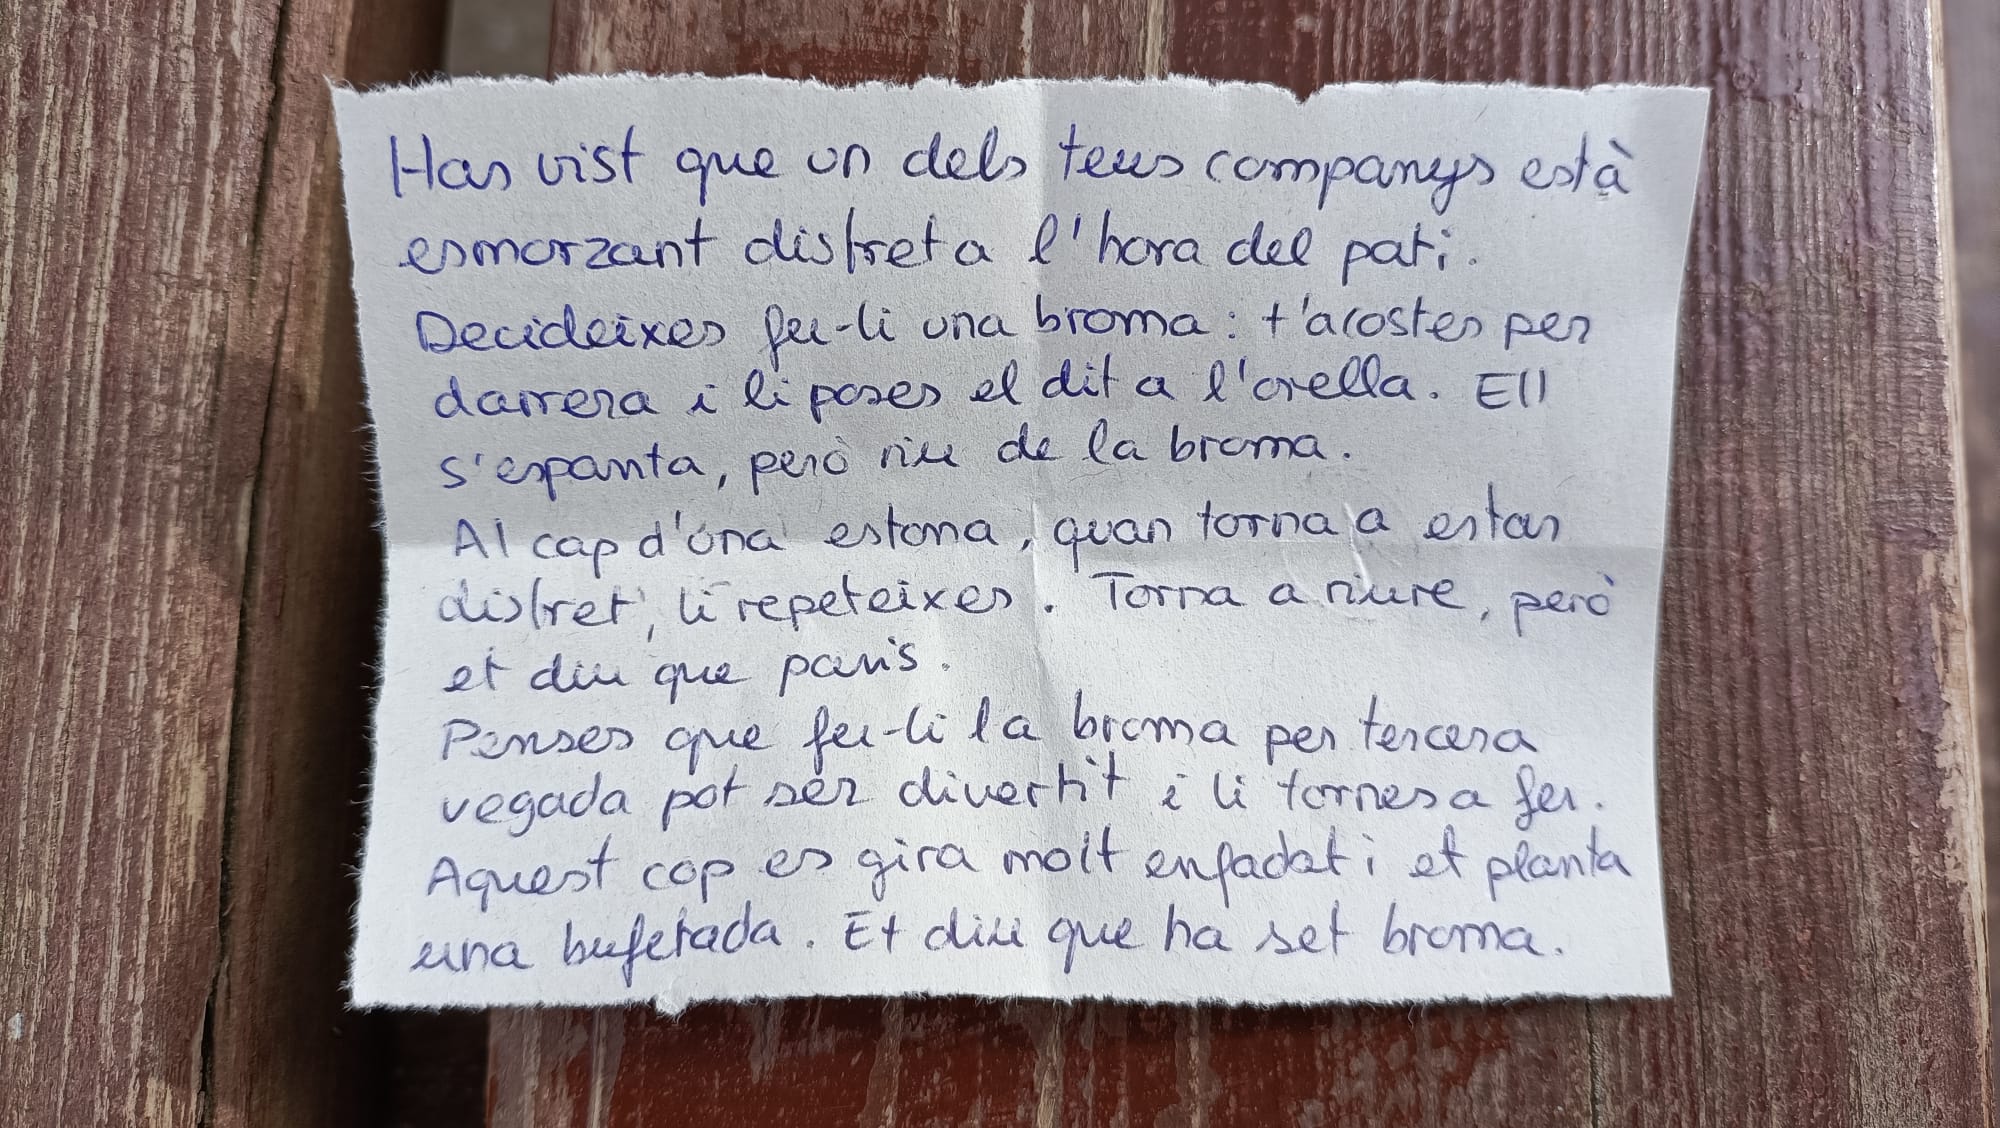 Has vist que un dels teus companys està
esmorzant distret a l'hora del pati.
Decideixes fer-li una broma: t'acostes per
darrera i li poses el dit a l'orella. Ell
s'espanta, però riu de la broma.
Al cap d'una estona, quan torna a estar
distret, li repeteixes. Torna a riure, però
et diu que paris.
Penses que fer-li la broma per tercera
vegada pot ser divertit i li tornes a fer.
Aquest cop es gira molt enfadat i et planta
una bufetada. Et diu que ha set broma.